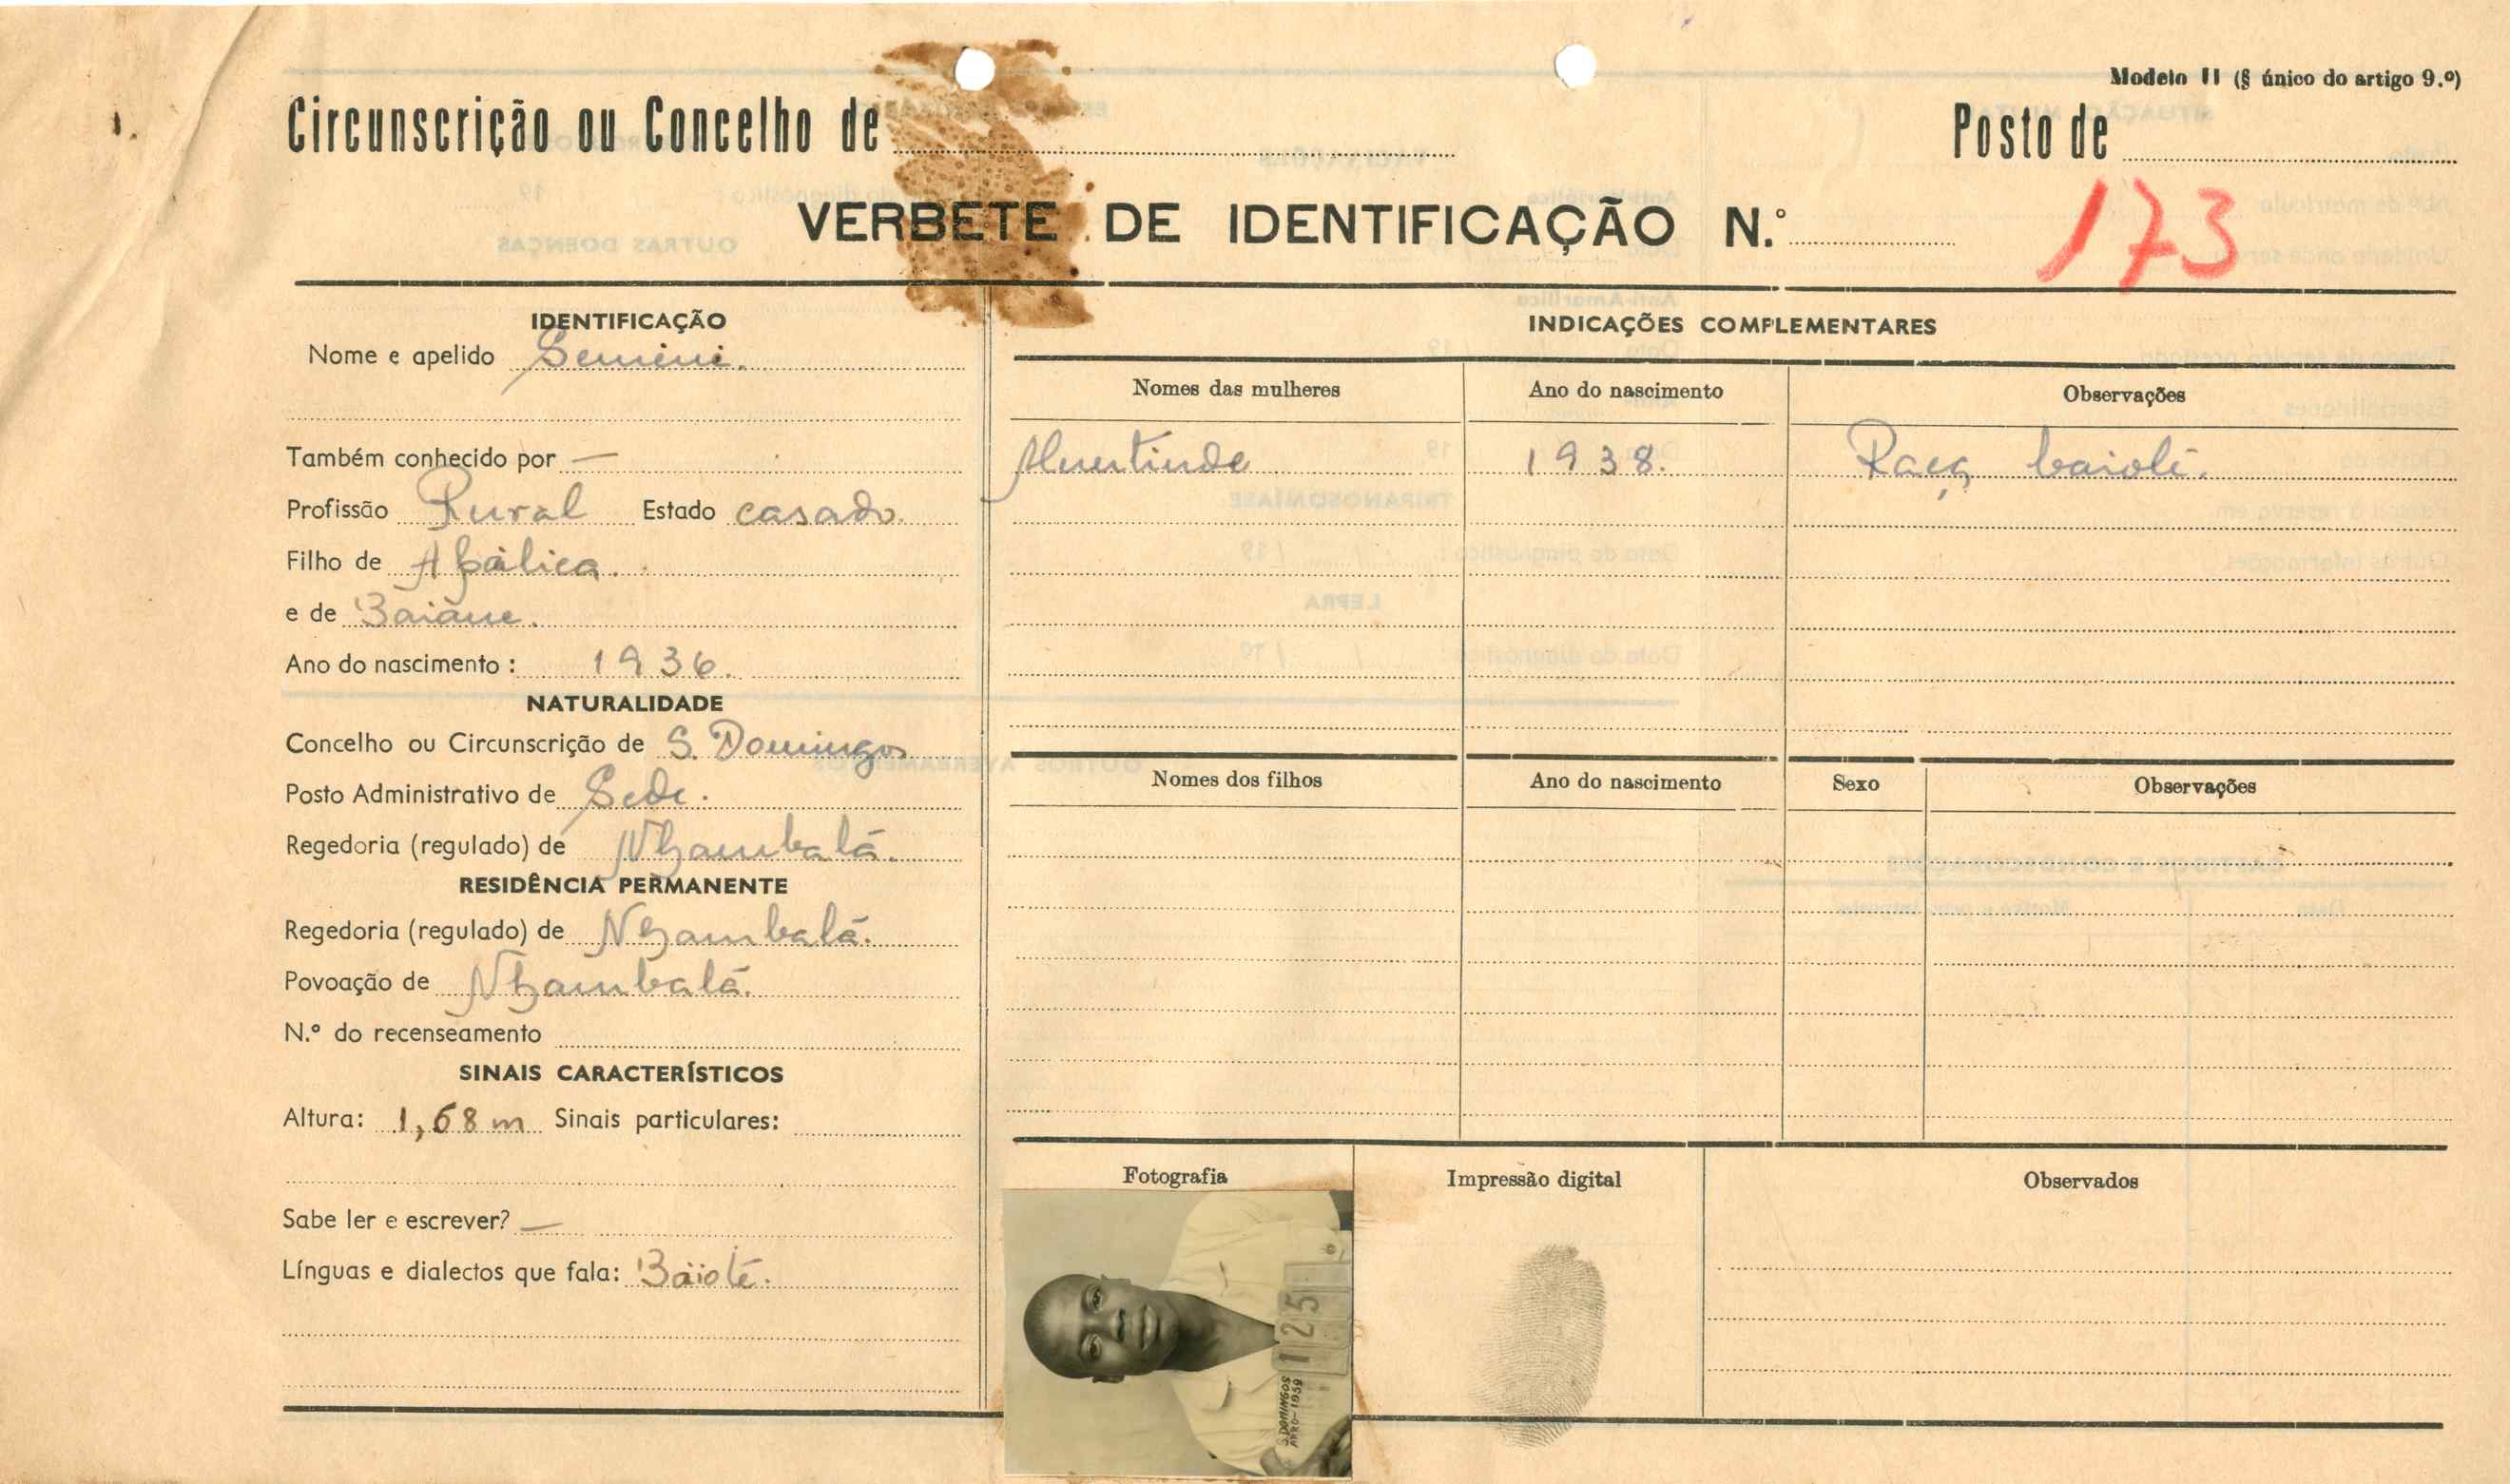 Modelo II (§ único do artigo 9.º)
Circunscrição ou Concelho de
Posto de
VERBETE DE IDENTIFICAÇÃO N.º
173
IDENTIFICAÇÃO
Nome e apelido Semini.
Também conhecido por —
Profissão Rural Estado casado.
Filho de
e de Baiáne.
Ano do nascimento: 1936.
NATURALIDADE
Concelho ou Circunscrição de S. Domingos
Posto Administrativo de Sede.
Regedoria (regulado) de Nhambalã.
RESIDÊNCIA PERMANENTE
Regedoria (regulado) de Nhambalã.
Povoação de Nhambalã.
N.º do recenseamento
SINAIS CARACTERÍSTICOS
Altura: 1,68 m Sinais particulares:
Sabe ler e escrever? —
Línguas e dialectos que fala: Baioté.
INDICAÇÕES COMPLEMENTARES
Nomes das mulheres Ano do nascimento Observações
1938. Raça baioté.
Nomes dos filhos Ano do nascimento Sexo Observações
Fotografia Impressão digital Observados
125
S. DOMINGOS
1959